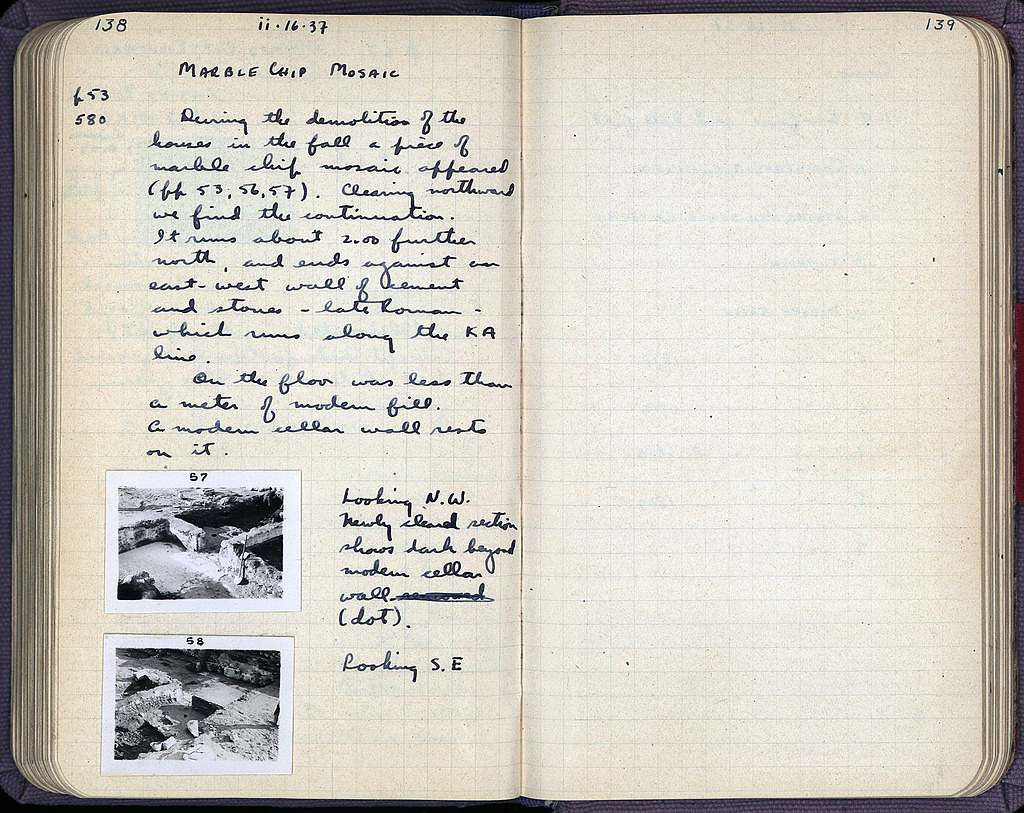 138
ii·16·37
139
MARBLE CHIP MOSAIC
p53
580
During the demolition of the
houses in the fall a piece of
marble chip mosaic appeared
(pp 53, 56, 57). Clearing northward
we find the continuation.
It runs about 2.00 further
north, and ends against an
east-west wall of cement
and stones - late Roman -
which runs along the KA
line.
On the floor was less than
a meter of modern fill.
A modern cellar wall rests
on it.
57
Looking N.W.
Newly cleared section
shows dark beyond
modern cellar
wall removed
(dot).
58
Looking S.E